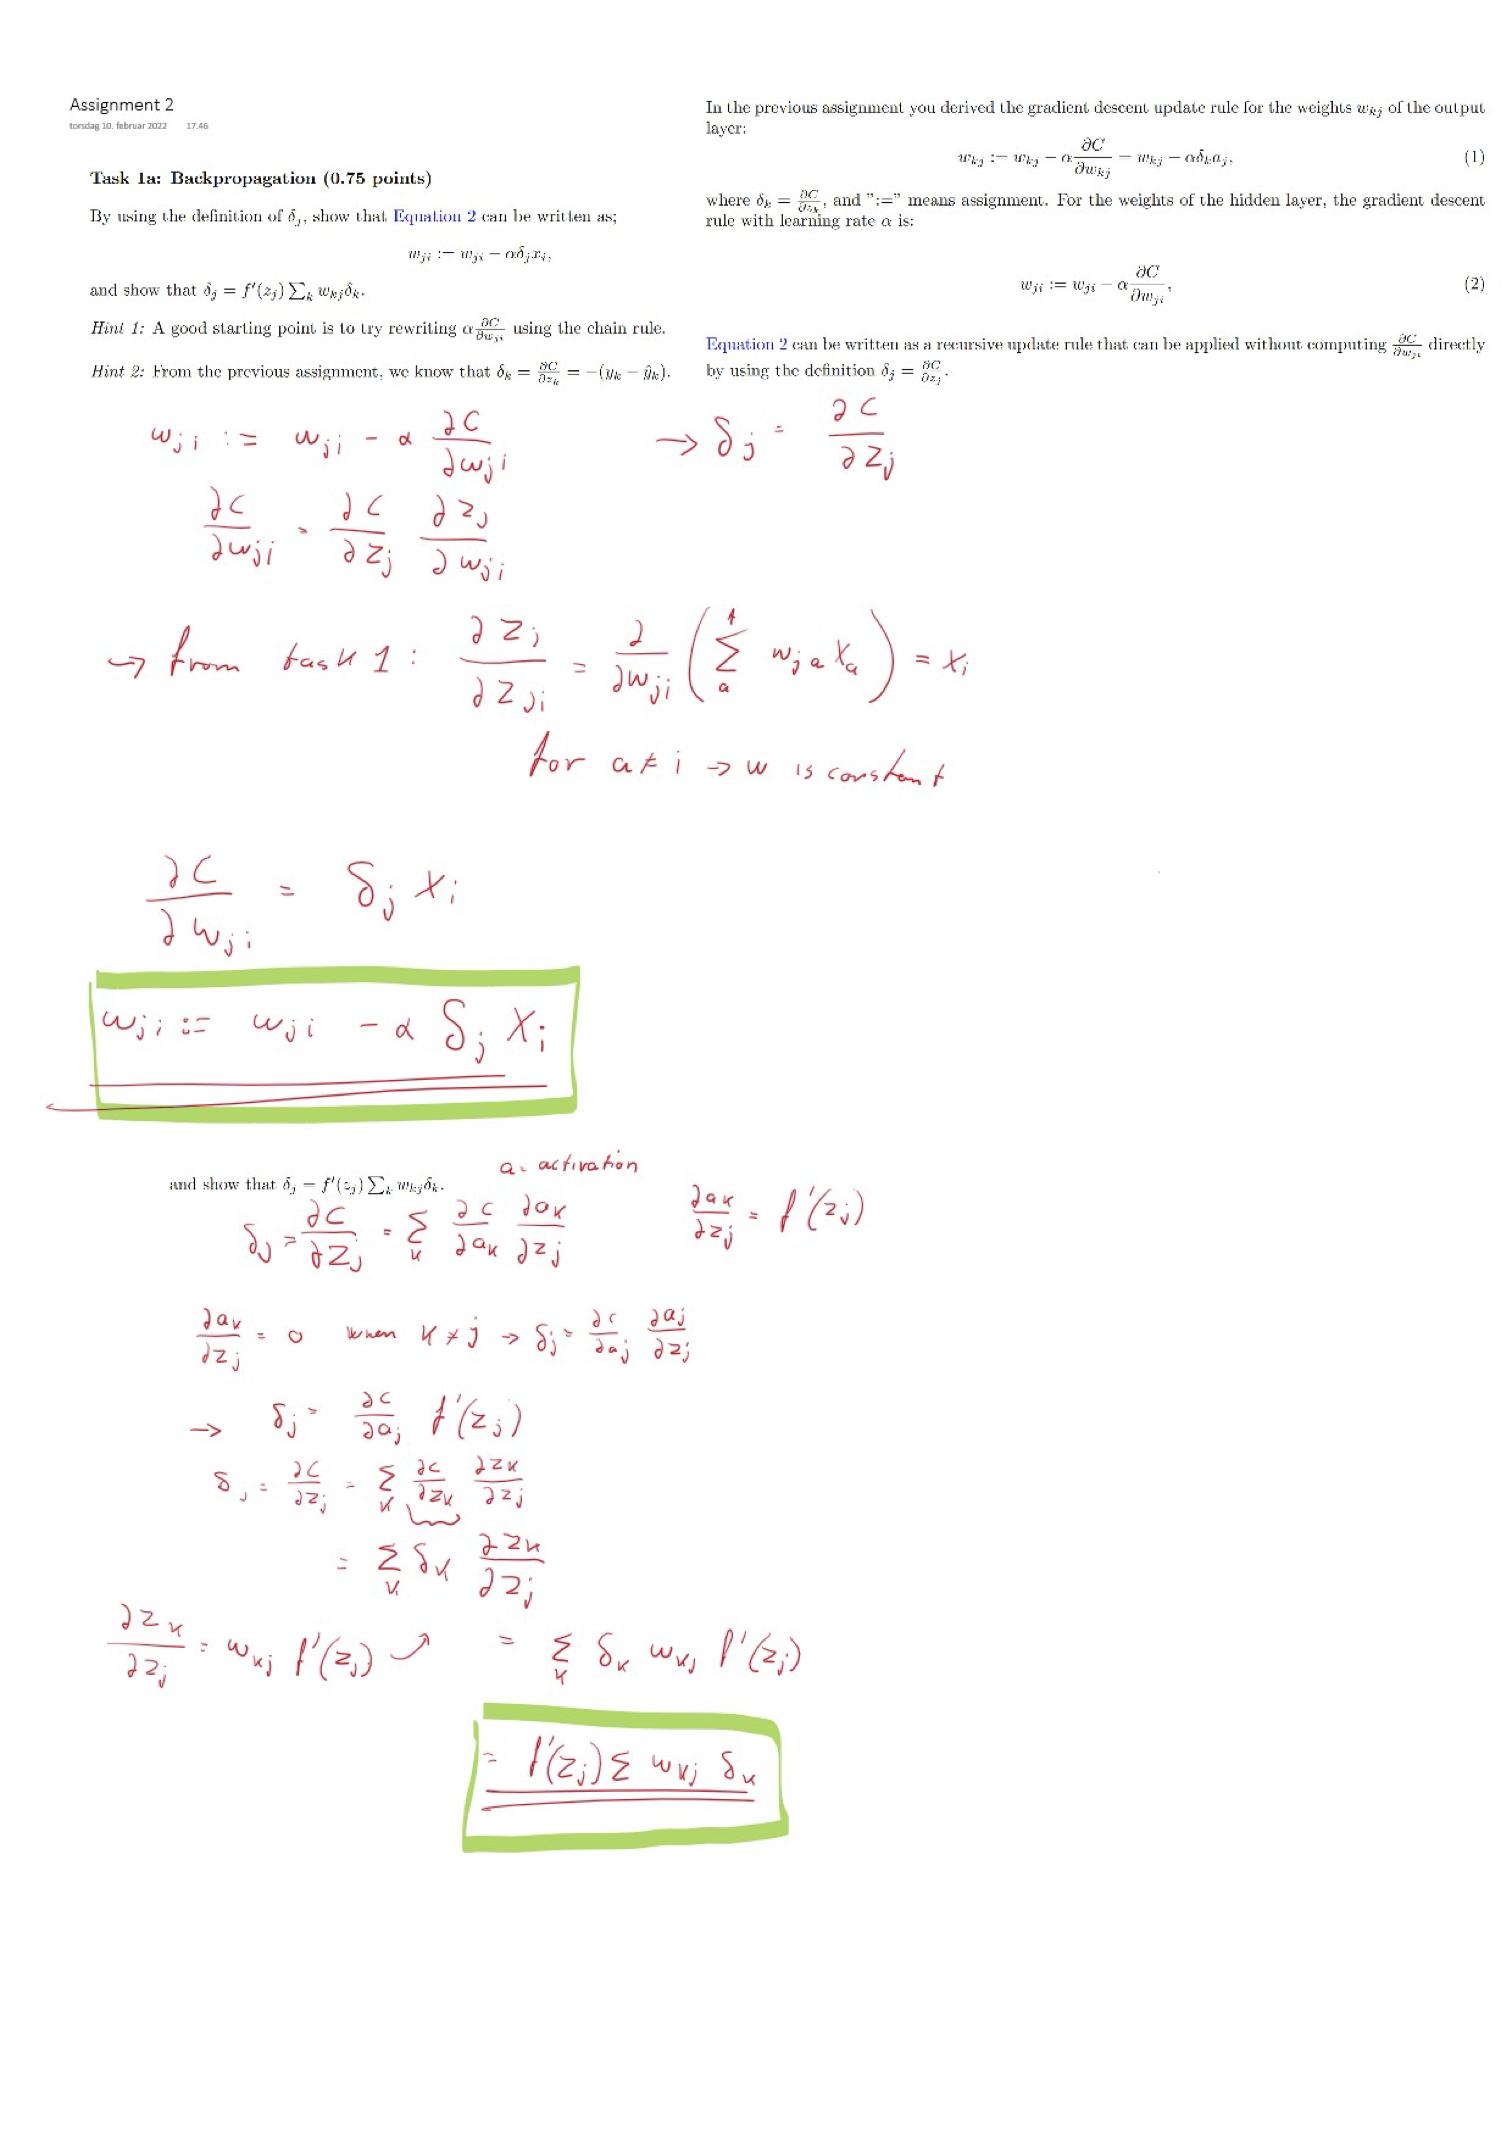 Assignment 2
torsdag 10. februar 2022 17.46
Task 1a: Backpropagation (0.75 points)
By using the definition of δ_j, show that Equation 2 can be written as;
w_ji := w_ji − αδ_j x_i,
and show that δ_j = f′(z_j) ∑_k w_kj δ_k.
Hint 1: A good starting point is to try rewriting α ∂C/∂w_ji using the chain rule.
Hint 2: From the previous assignment, we know that δ_k = ∂C/∂z_k = −(y_k − ŷ_k).
In the previous assignment you derived the gradient descent update rule for the weights w_kj of the output
layer:
w_kj := w_kj − α ∂C/∂w_kj = w_kj − αδ_k a_j, (1)
where δ_k = ∂C/∂z_k, and ":=" means assignment. For the weights of the hidden layer, the gradient descent
rule with learning rate α is:
w_ji := w_ji − α ∂C/∂w_ji, (2)
Equation 2 can be written as a recursive update rule that can be applied without computing ∂C/∂w_ji directly
by using the definition δ_j = ∂C/∂z_j.
w_ji := w_ji − α ∂C/∂w_ji → δ_j = ∂C/∂z_j
∂C/∂w_ji = ∂C/∂z_j ∂z_j/∂w_ji
→ from task 1: ∂z_j/∂z_ji = ∂/∂w_ji (∑_a^A w_ja x_a) = x_i
for a ≠ i → w is constant
∂C/∂w_ji = δ_j x_i
w_ji := w_ji − α δ_j x_i
a = activation
and show that δ_j = f′(z_j) ∑_k w_kj δ_k.
δ_j = ∂C/∂z_j = ∑_k ∂C/∂a_k ∂a_k/∂z_j ∂a_k/∂z_j = f′(z_j)
∂a_k/∂z_j = 0 when k ≠ j → δ_j = ∂C/∂a_j ∂a_j/∂z_j
→ δ_j = ∂C/∂a_j f′(z_j)
δ_j = ∂C/∂z_j = ∑_k ∂C/∂z_k ∂z_k/∂z_j
= ∑_k δ_k ∂z_k/∂z_j
∂z_k/∂z_j = w_kj f′(z_j) ↗ = ∑_k δ_k w_kj f′(z_j)
= f′(z_j) ∑ w_kj δ_k